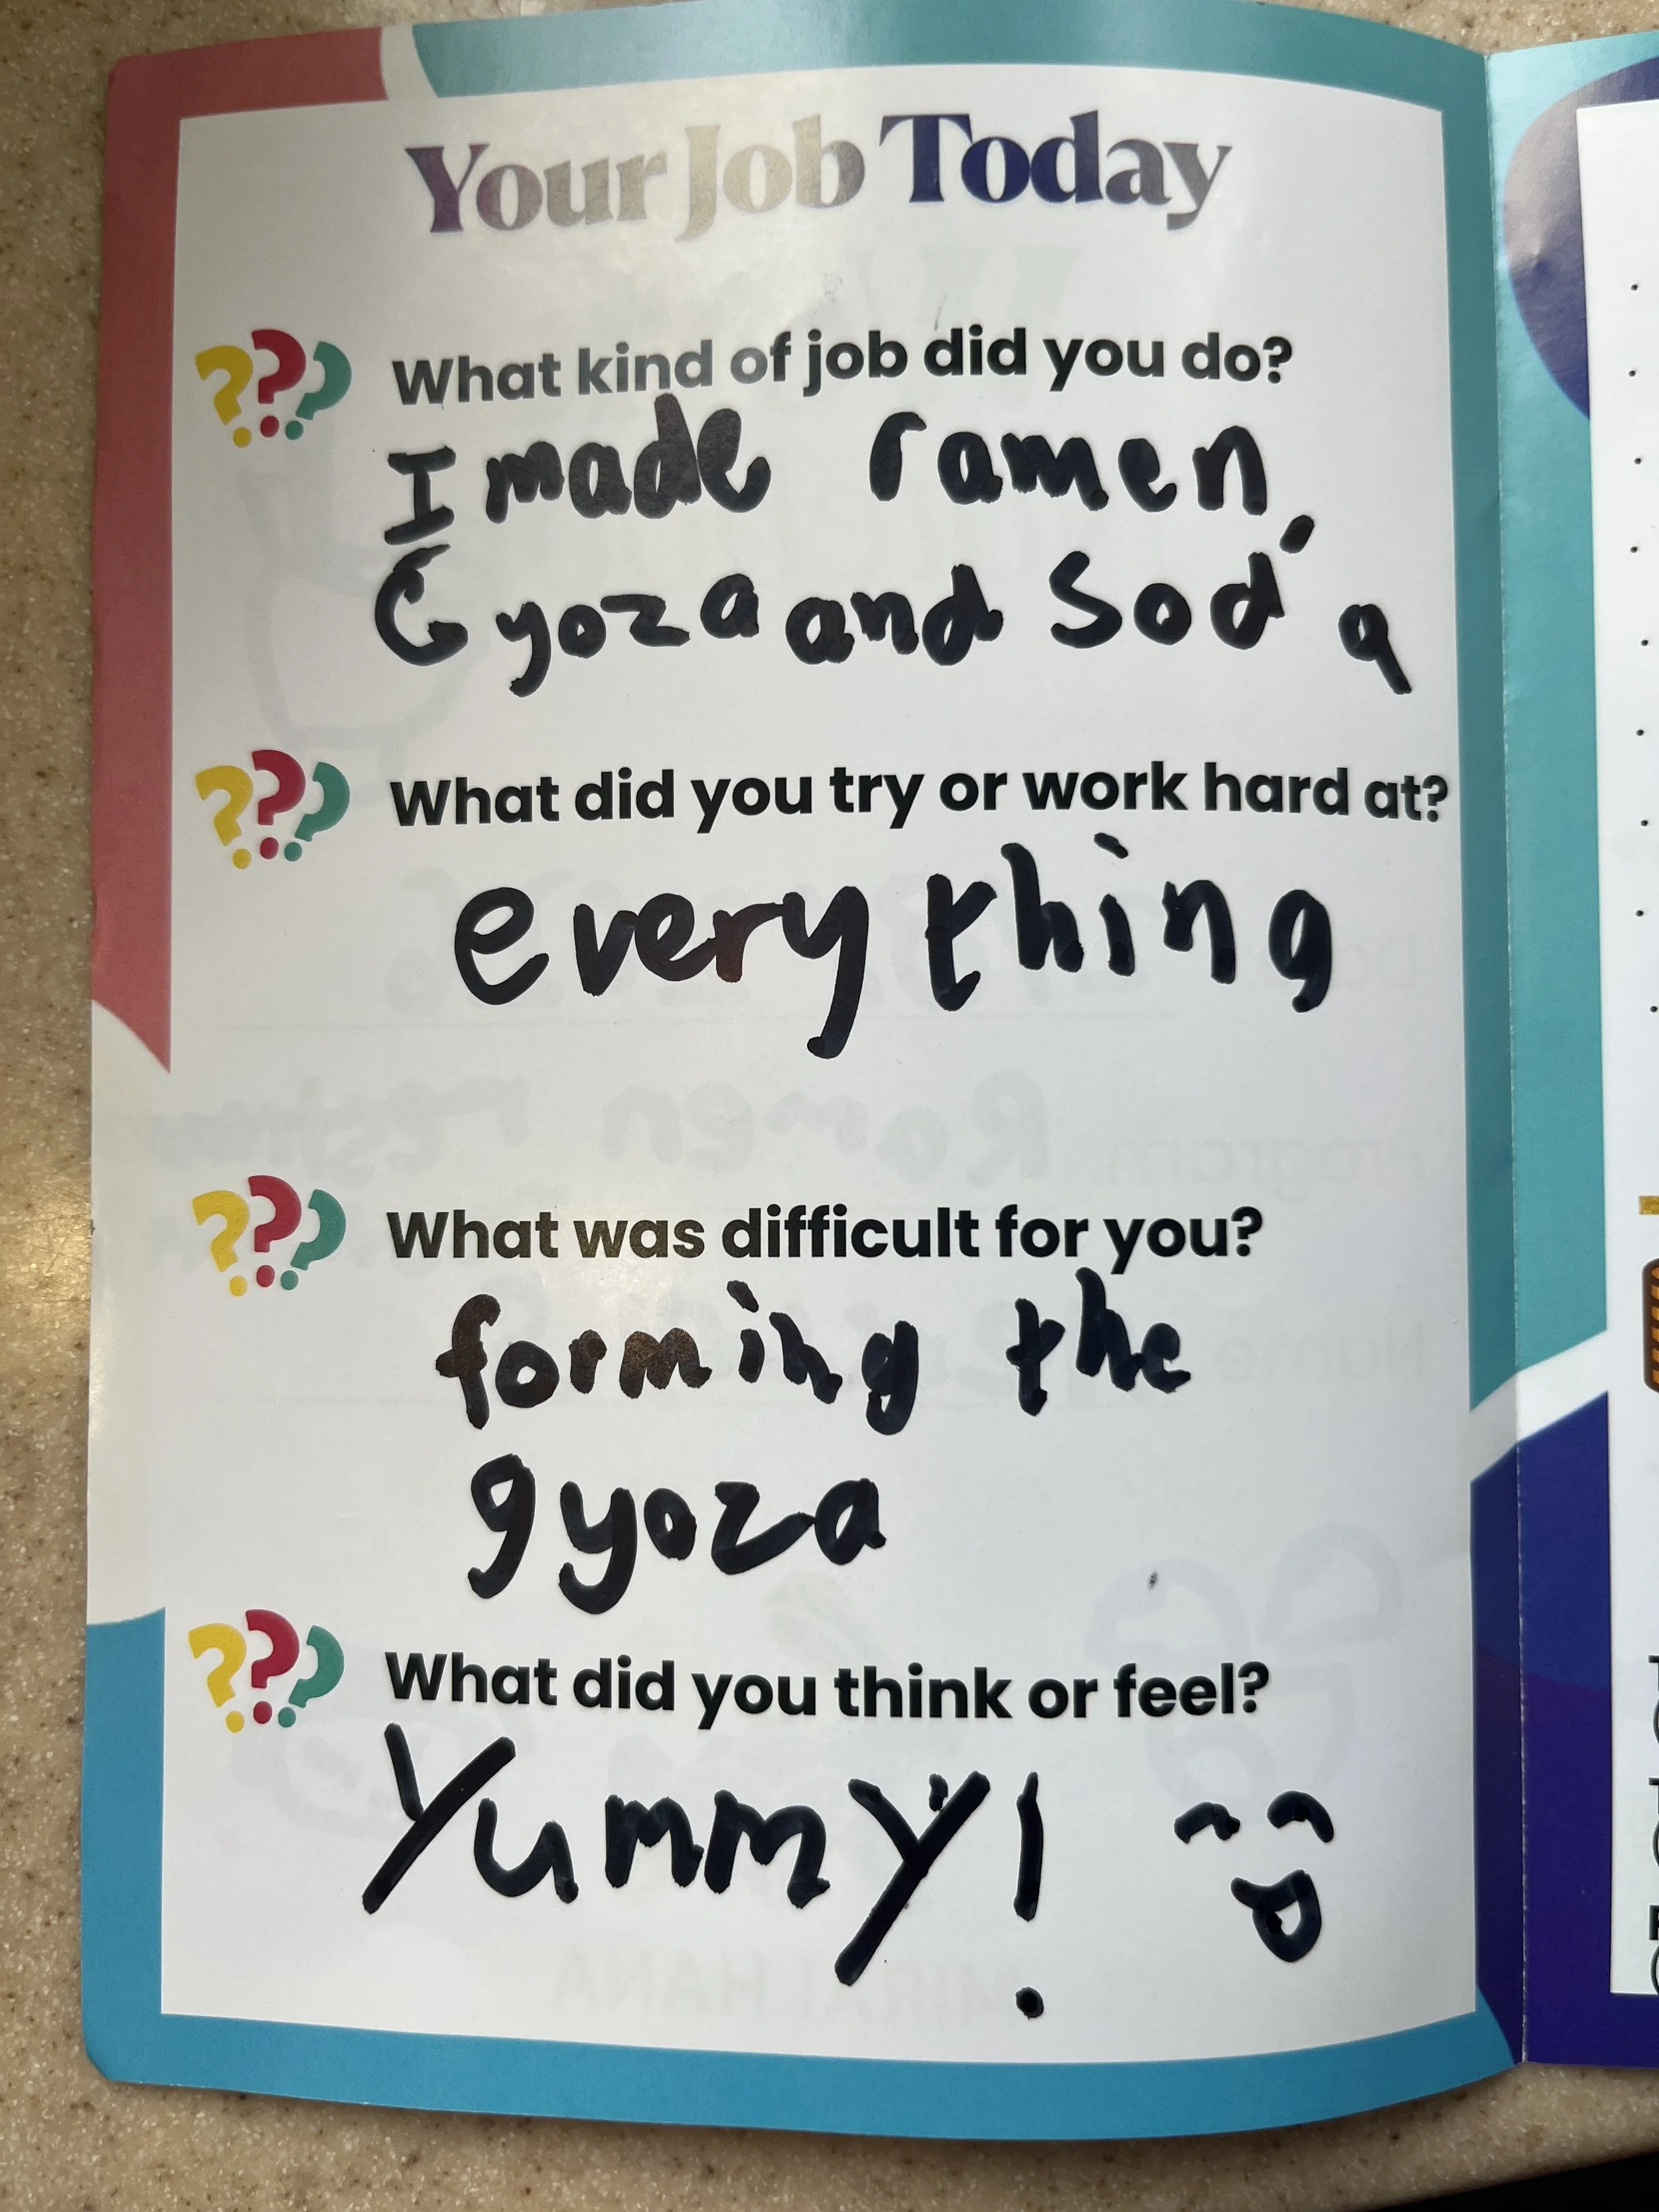 Your Job Today
What kind of job did you do?
I made ramen,
Gyoza and Soda
What did you try or work hard at?
everything
What was difficult for you?
forming the
gyoza
What did you think or feel?
Yummy!